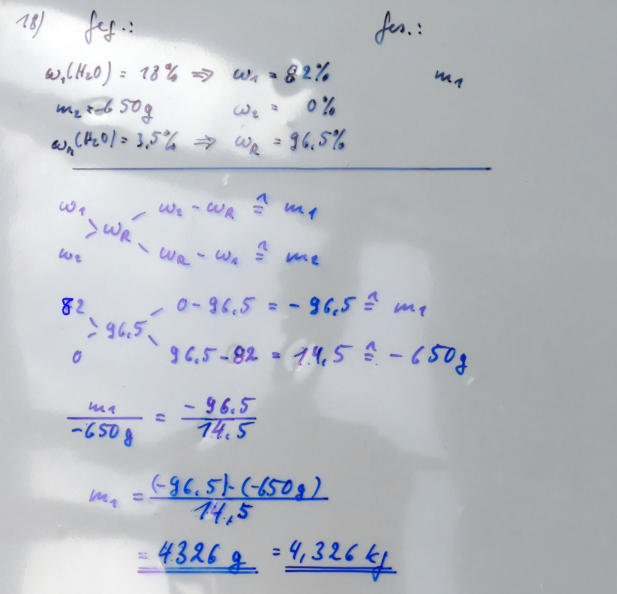 18) geg.: ges.:
ω₁(H₂O) = 18% ⇒ ω₁ = 82% m₁
m₂ = -650g ω₂ = 0%
ω_R(H₂O) = 3,5% ⇒ ω_R = 96,5%
ω₁ ω₂ - ω_R ≙ m₁
ω_R
ω₂ ω_R - ω₁ ≙ m₂
82 0 - 96,5 = -96,5 ≙ m₁
96,5
0 96,5 - 82 = 14,5 ≙ -650g
m₁ / -650g = -96,5 / 14,5
m₁ = (-96,5)·(-650g) / 14,5
= 4326 g = 4,326 kg